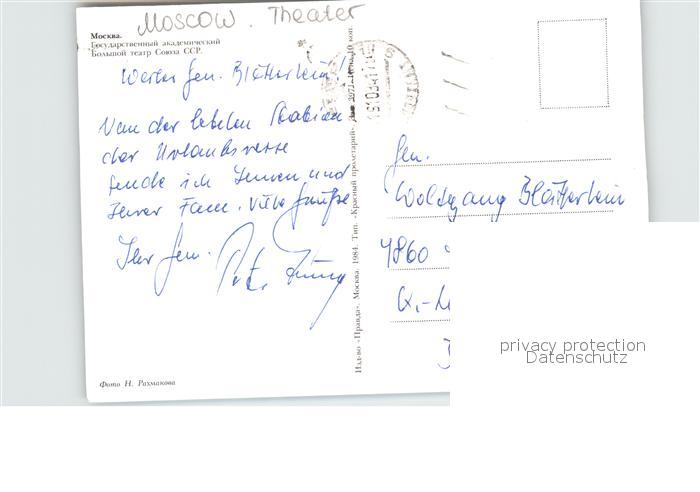 Moscow. Theater
Москва.
Государственный академический
Большой театр Союза ССР.
Werter Gen. Blätterlein!
Von der letzten Station
der Urlaubsreise
sende ich Ihnen und
Ihrer Fam. viele Grüße
Ihr Gen. Peter
Фото Н. Рахманова
Изд-во «Правда». Москва. 1984. Тип. «Красный пролетарий».
Gen.
Wolfgang Blätterlein
4860
privacy protection
Datenschutz